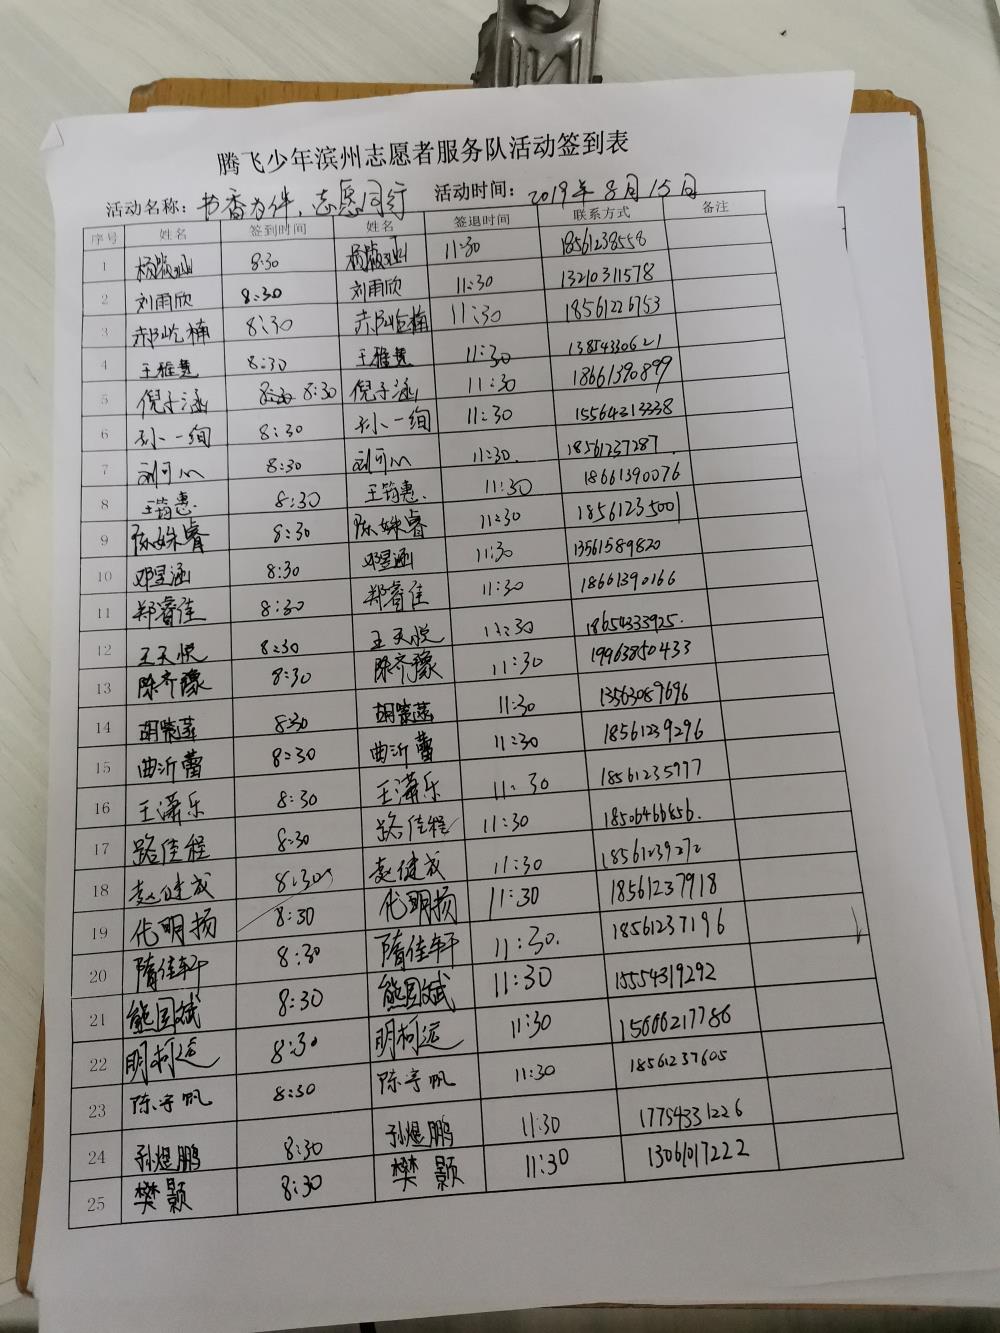 腾飞少年滨州志愿者服务队活动签到表
活动名称：书香为伴，志愿同行 活动时间：2019年8月15日
序号 姓名 签到时间 姓名 签退时间 联系方式 备注
1 8:30 11:30 18561238558
2 刘雨欣 8:30 刘雨欣 11:30 13210311578
3 8:30 11:30 18561226753
4 王雅萱 8:30 王雅萱 11:30 13854330621
5 倪子涵 8:30 8:30 倪子涵 11:30 18661390899
6 孙一绚 8:30 孙一绚 11:30 15564313338
7 刘可心 8:30 刘可心 11:30. 18561237287.
8 王筠惠. 8:30 王筠惠. 11:30 18661390076
9 陈姝睿 8:30 陈姝睿 11:30 18561235001
10 邓昱涵 8:30 邓昱涵 11:30 13561589820
11 郑睿佳 8:30 郑睿佳 11:30 18661390166
12 王天悦 8:30 王天悦 11:30 18654333925.
13 陈齐豫 8:30 陈齐豫 11:30 19963850433
14 8:30 11:30 13563089696
15 曲沂蕾 8:30 曲沂蕾 11:30 18561239296
16 王潇乐 8:30 王潇乐 11:30 18561235997
17 路佳程 8:30 路佳程 11:30 18506466856.
18 赵健成 8:30 赵健成 11:30 18561239272
19 代明扬 8:30 代明扬 11:30 18561237918
20 隋佳轩 8:30 隋佳轩 11:30. 18561237196
21 熊国斌 8:30 熊国斌 11:30 15554319292
22 明柯远 8:30 明柯远 11:30 15606217786
23 陈宇帆 8:30 陈宇帆 11:30 18561237605
24 孙煜鹏 8:30 孙煜鹏 11:30 17754331226
25 樊颢 8:30 樊颢 11:30 13061017222